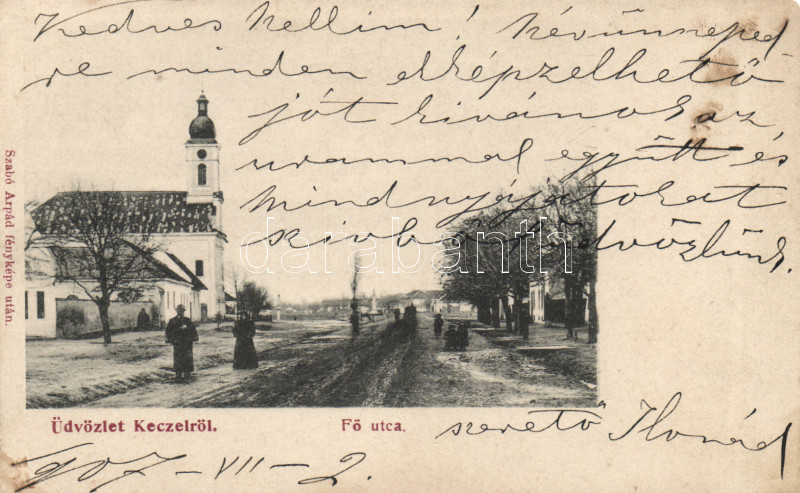 Kedves Kellim! Névünneped-
re minden elképzelhető
jót kivánok az
urammal együtt és
mindnyájatokat
szivből üdvözlünk.
darabanth
Szabó Árpád fényképe után.
Üdvözlet Keczelről.
Fő utca.
szerető Ilonád
907-VII-2.